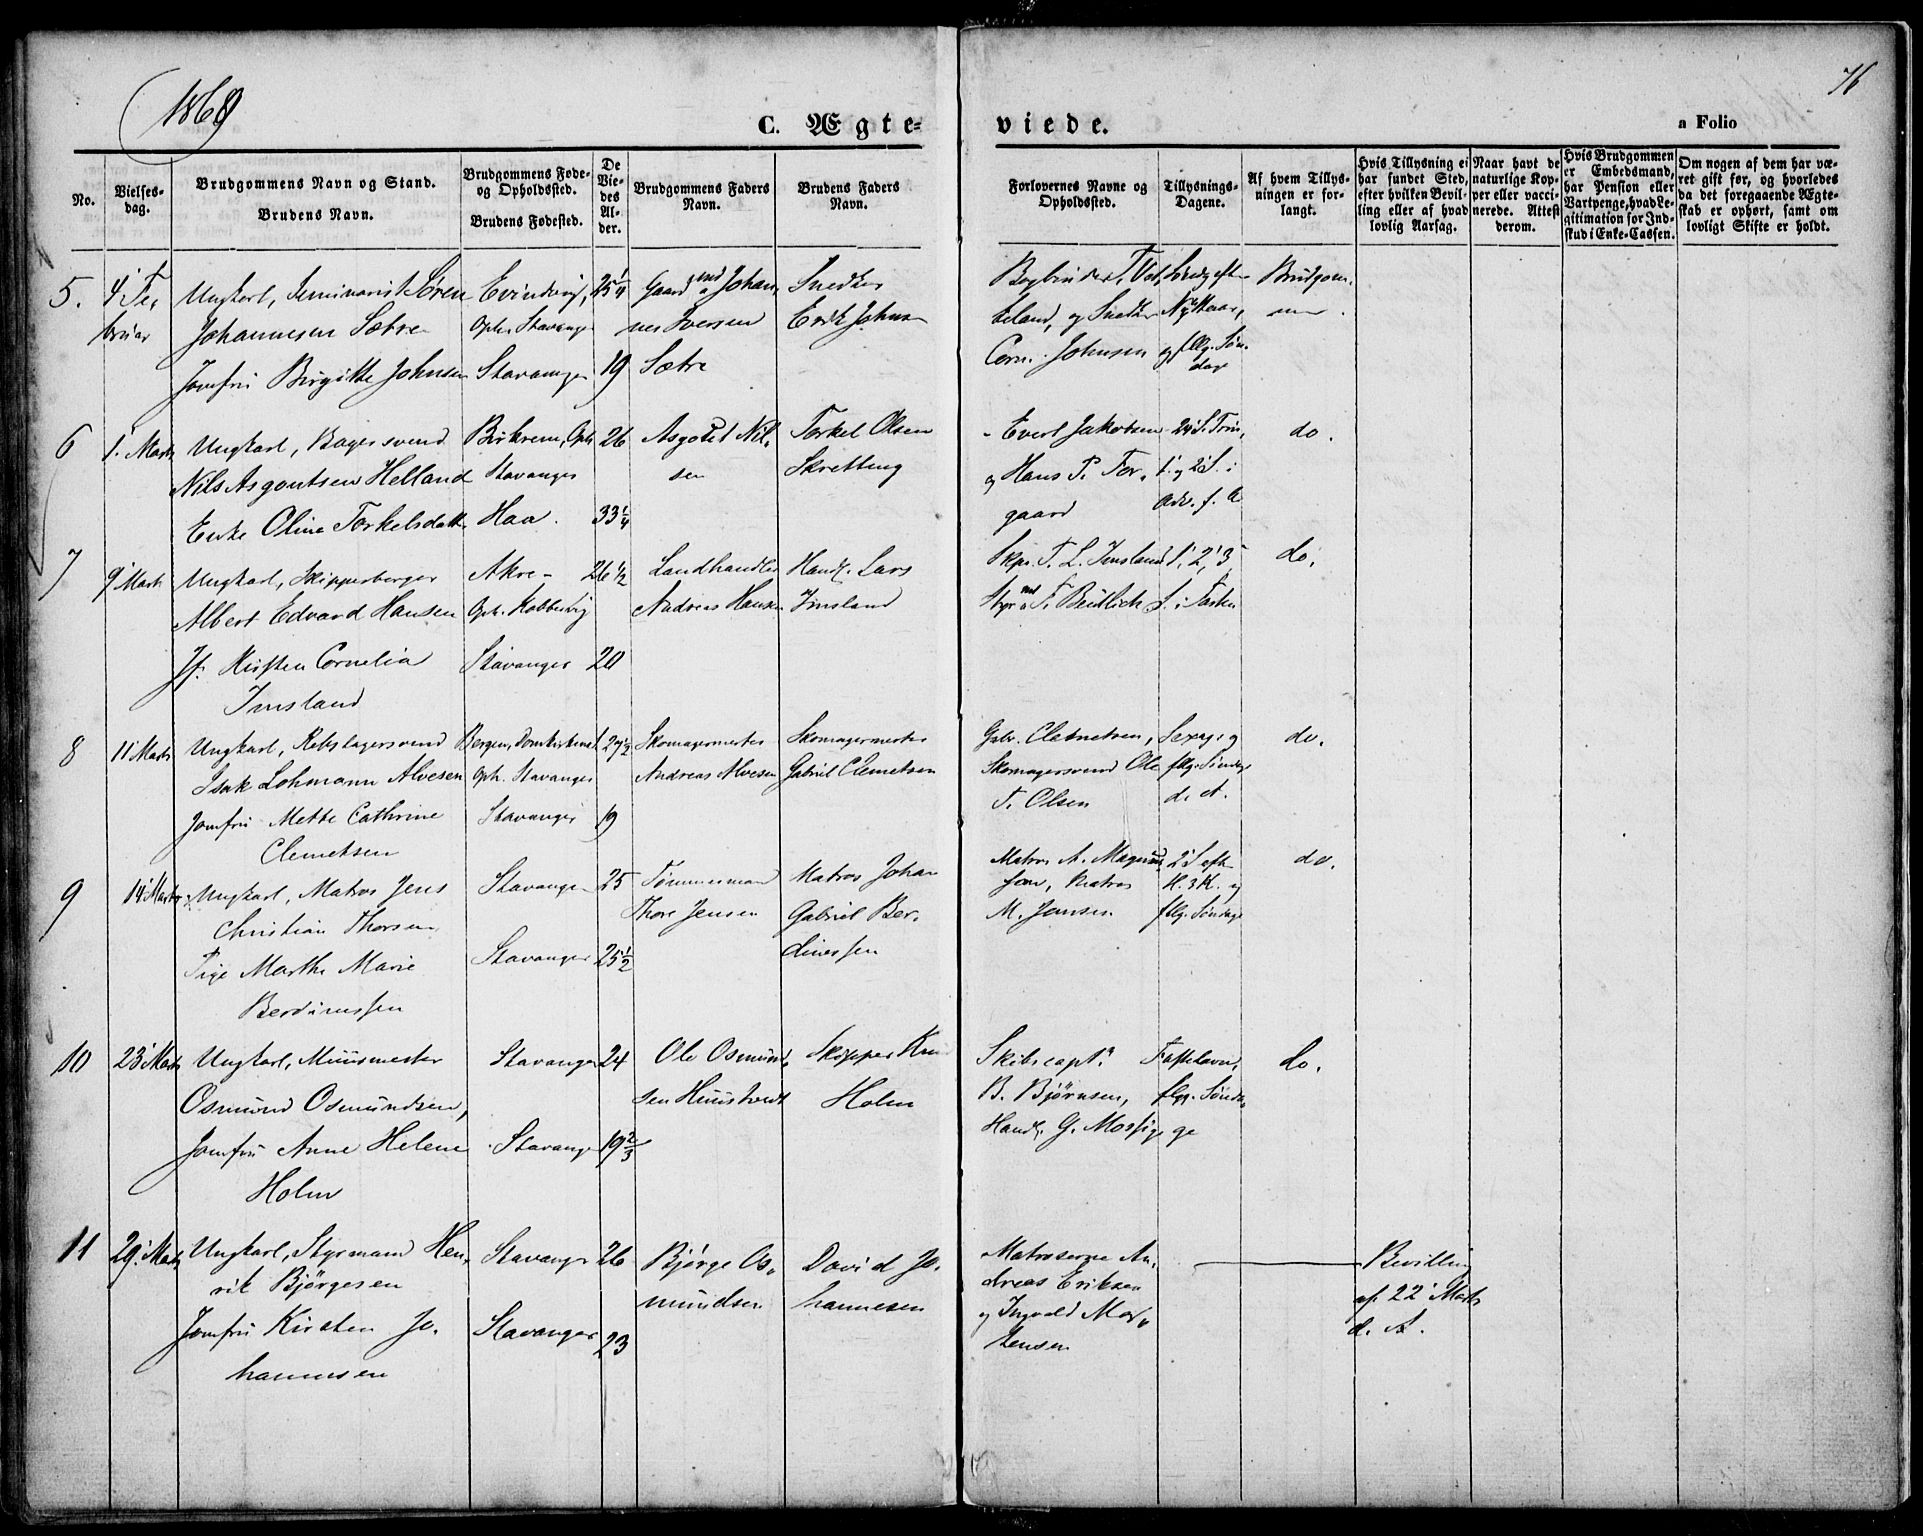 1869
76
C. Ægte-
viede.
a Folio
No.
Vielses-
dag.
Brudgommens Navn og Stand.
Brudens Navn.
Brudgommens Føde-
og Opholdssted.
Brudens Fødested.
De
Vie-
des
Al-
der.
Brudgommens Faders
Navn.
Brudens Faders
Navn.
Forlovernes Navne og
Opholdssted.
Tillysnings-
Dagene.
Af hvem Tillys-
ningen er for-
langt.
Hvis Tillysning ei
har fundet Sted,
efter hvilken Bevil-
ling eller af hvad
lovlig Aarsag.
Naar havt de
naturlige Kop-
per eller vacci-
nerede. Attest
derom.
Hvis Brudgommen
er Embedsmand,
har Pension eller
Vartpenge, hvad Le-
gitimation for Ind-
skud i Enke-Cassen.
Om nogen af dem har væ-
ret gift før, og hvorledes
da det foregaaende Ægte-
skab er ophørt, samt om
lovligt Skifte er holdt.
5.
4' Fe,
bruar
Ungkarl, Seminarist Søren
Johannesen Sætre
Jomfru Birgitte Johnsen
Evindvig,
Oph. Stavanger
Stavanger
25 1/4
19
Gaardmd Johan,
nes Iversen
Sætre
Snedker
Erik Johnsen
Bogbinder T. Vat,
land, og Snedker
Corn. Johnsen
Søndg eft
Nytaar,
og flg. Søn-
dag
Brudgom.
men.
6
1. Marts
Ungkarl, Bagersvend
Nils Asgoutsen Helland
Enke Oline Torkelsdatter
Birkrem, Oph.
Stavanger
Haa.
26
33 1/4
Asgout Nil,
sen
Torkel Olsen
Skretting
Evert Jakobsen
og Hans P. Tor,
gaard
24' S. Trin,
1' og 2' S. i
Adv. f. A
do.
7
9' Marts
Ungkarl, Skipperborger
Albert Edvard Hansen
Jf. Kirsten Cornelia
Imsland
Akre
Oph. Kobbervig
Stavanger
26 1/2
20
Landhandler
Andreas Hansen
Handl. Lars
Imsland
Skpr. T. L. Imsland
Styrmd F. Beutlich
1', 2', 3'
S. i Fasten
do.
8
11' Marts
Ungkarl, Rebslagersvend
Isak Lohmann Alvesen
Jomfru Mette Cathrine
Clemetsen
Bergen, Domkirken
Oph. Stavanger
Stavanger
27 1/2
19
Skomagermester
Andreas Alvesen
Skomagermester
Gabriel Clemetsen
Gabr. Clemetsen,
Skomagersvend Ole
T. Olsen
Sexag. og
flg. Søndag
d. A.
do.
9
14' Marts
Ungkarl, Matros Jens
Christian Thorsen
Pige Marthe Marie
Berdinessen
Stavanger
Stavanger
25
25 1/2
Tømmermand
Thore Jensen
Matros Johan
Gabriel Ber-
dinessen
Matros A. Magnus,
sen, Matros
M. Jansen
2' S. eft
H. 3 K. og
flg. Søndage
do.
10
23' Marts
Ungkarl, Muusmester
Osmund Osmundsen,
Jomfru Anne Helene
Holm
Stavanger
Stavanger
24
19 2/3
Ole Osmund,
sen Huustvedt
Skipper Knud
Holm
Skibscaptn
B. Bjørnsen,
Handl. G. Mossige
Fastelavn,
flg. Sønda,
ge
do.
11
29. Marts
Ungkarl, Styrmand Hen,
rik Bjørgesen
Jomfru Kirsten Jo,
hannesen
Stavanger
Stavanger
26
23
Bjørge Os,
mundsen
David Jo,
hannesen
Matroserne An,
dreas Eriksen
og Ingvald Mor,
tensen
Bevilling
af 22' Marts
d. A.